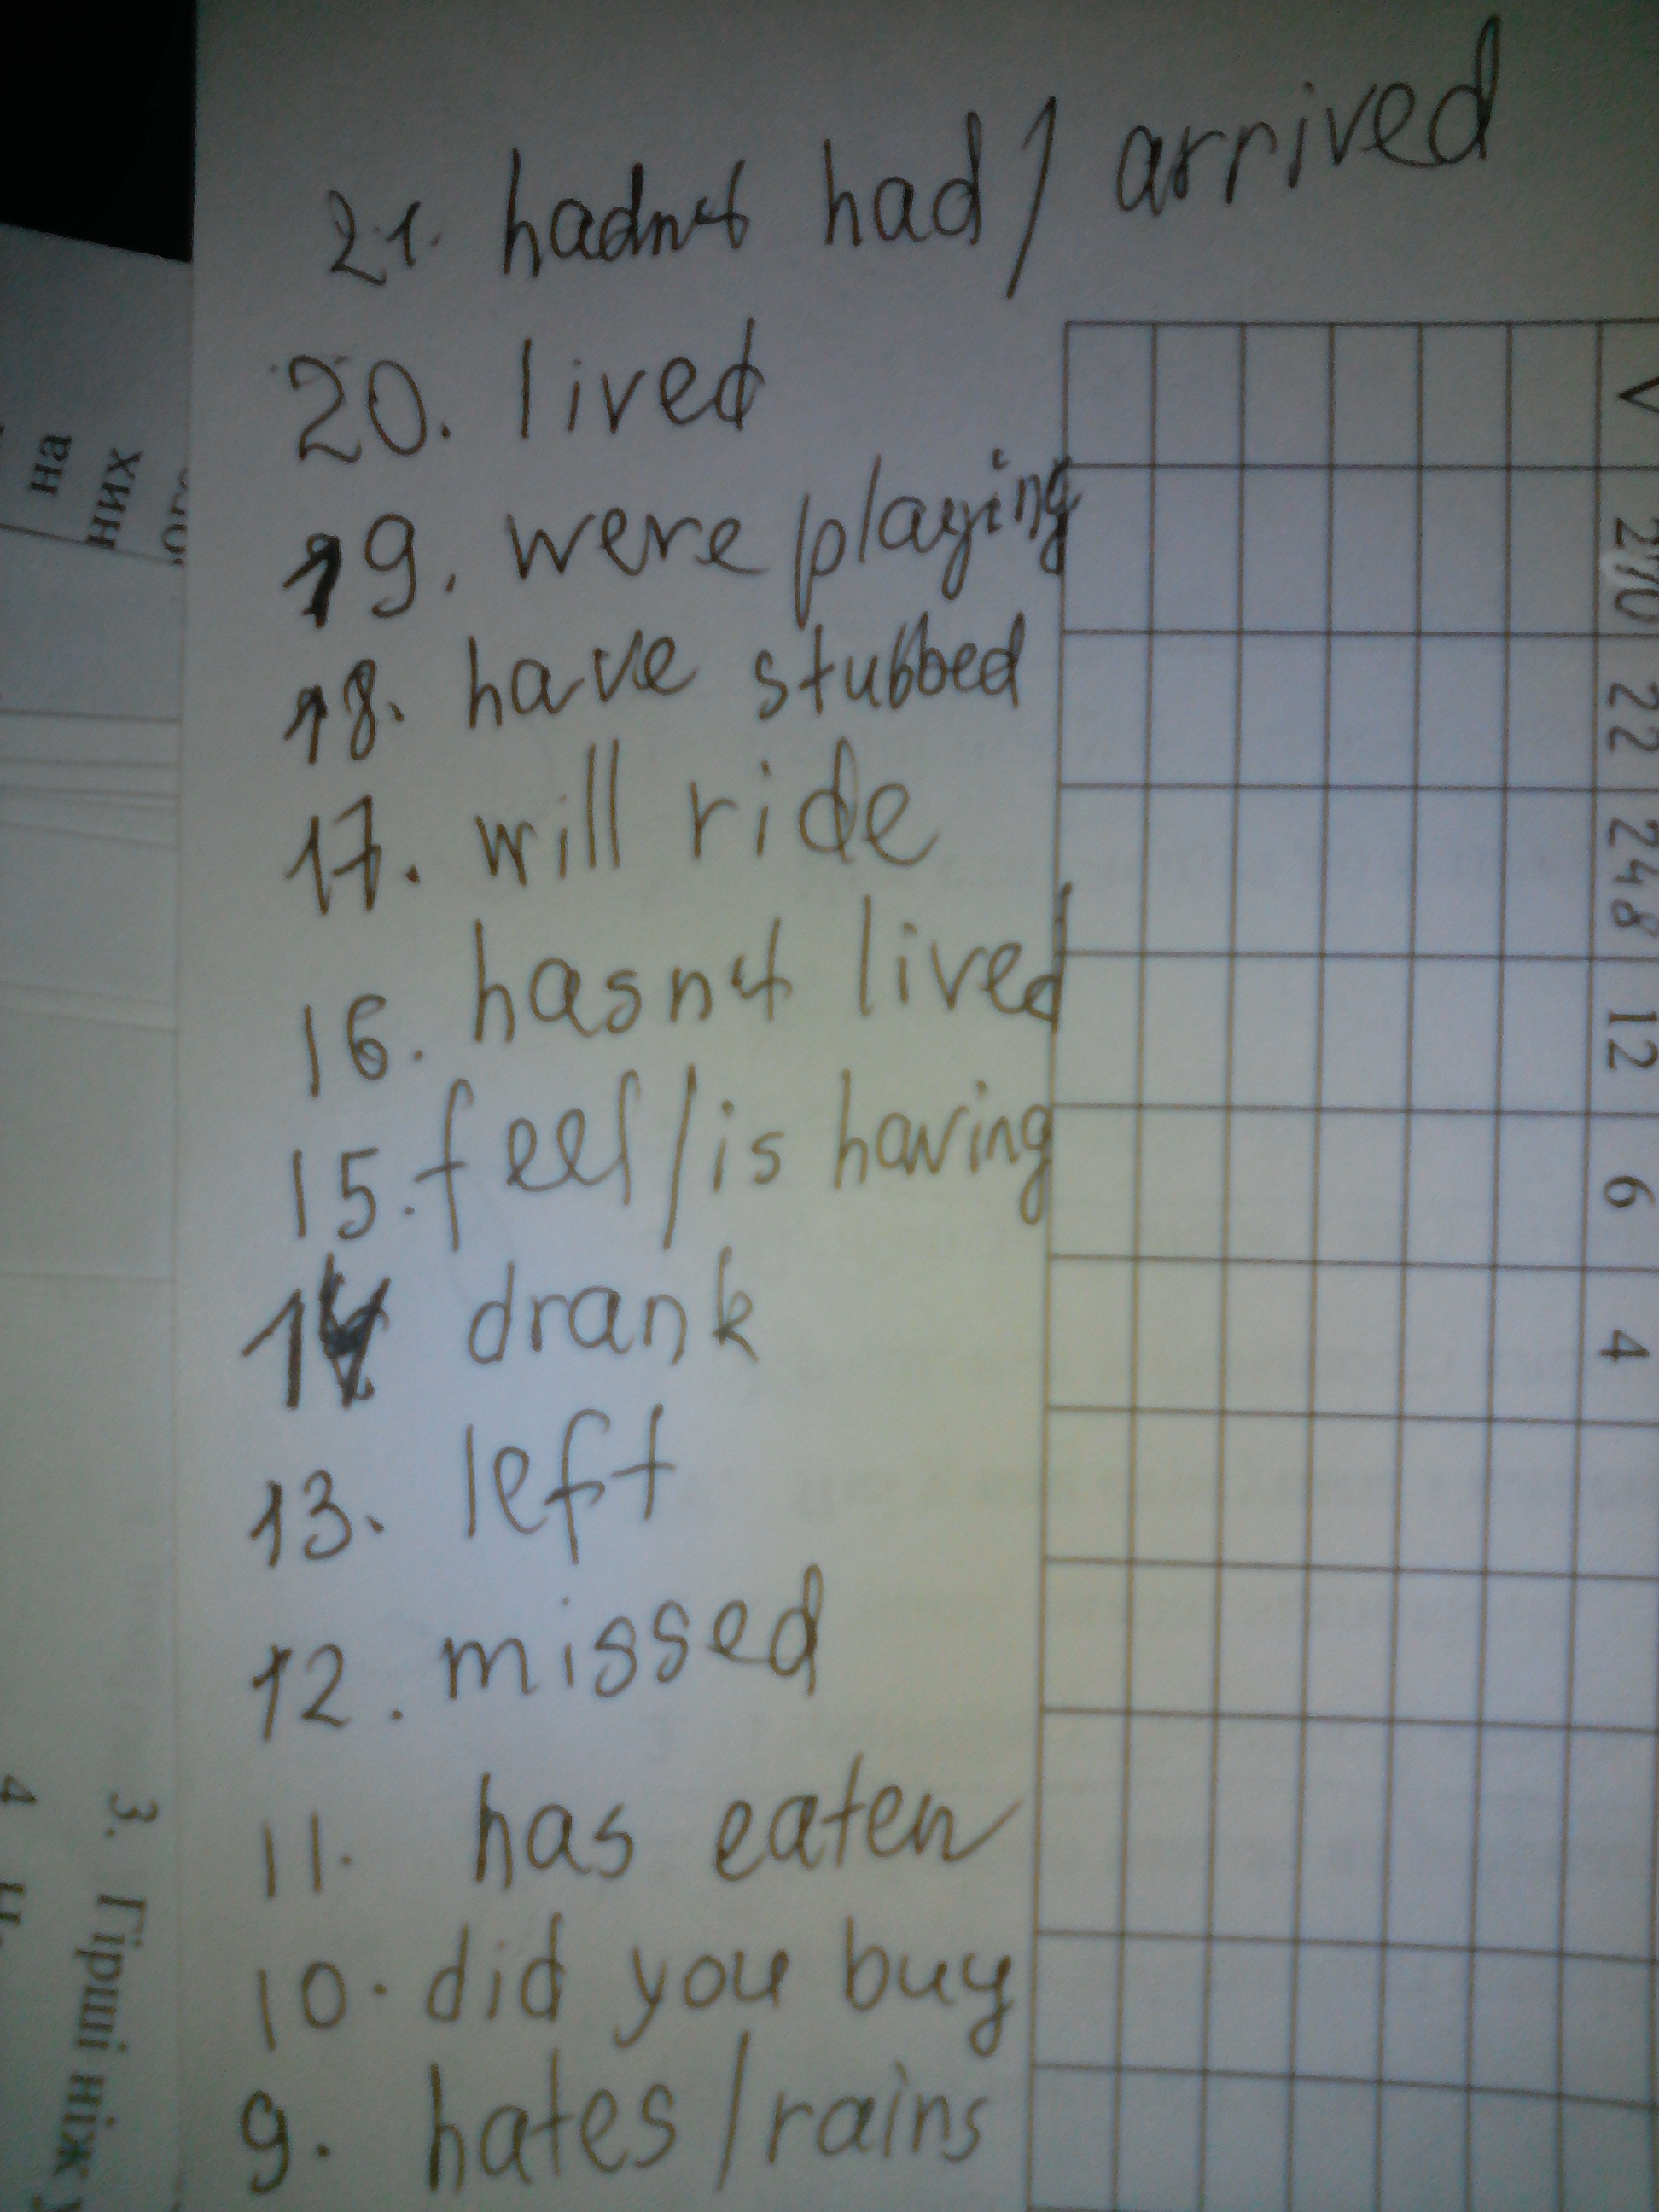 21. hadn't had / arrived
20. lived
19. were playing
18. have stubbed
17. will ride
16. hasn't lived
15. feel / is having
14 drank
13. left
12. missed
11. has eaten
10. did you buy
9. hates / rains
V
270
22
248
12
6
4
на
них
3. Гірші ніж у
4